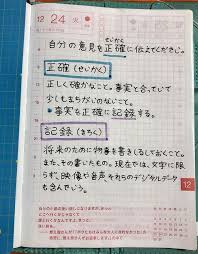 12 24 火
せいかく
自分の意見を正確に伝えてください。
正確(せいかく)
正しく確かなこと。事実と合っていて
少しもまちがいのないこと。
・事実を正確に記録する。
記録(きろく)
将来のために物事を書きしるしておくこと。
また、その書いたもの。現在では、文字に限
らず、映像や音声、それらのデジタルデータ
も含んでいう。
12